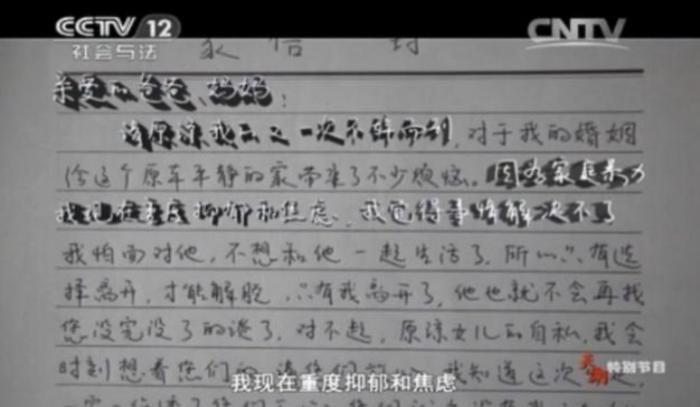 CCTV 12
社会与法
CNTV
亲爱的爸爸、妈妈:
请原谅我又一次不辞而别,对于我的婚姻
给这个原本平静的家带来了不少烦恼。因为家庭暴力
我现在重度抑郁和焦虑、我觉得事情解决不了
我怕面对他,不想和他一起生活了.所以只有选
择离开,才能解脱.只有我离开了,他也就不会再找
您没完没了的谈了.对不起,原谅女儿的自私.我会
时刻想着您们的 我知道这次
特别节目
我现在重度抑郁和焦虑